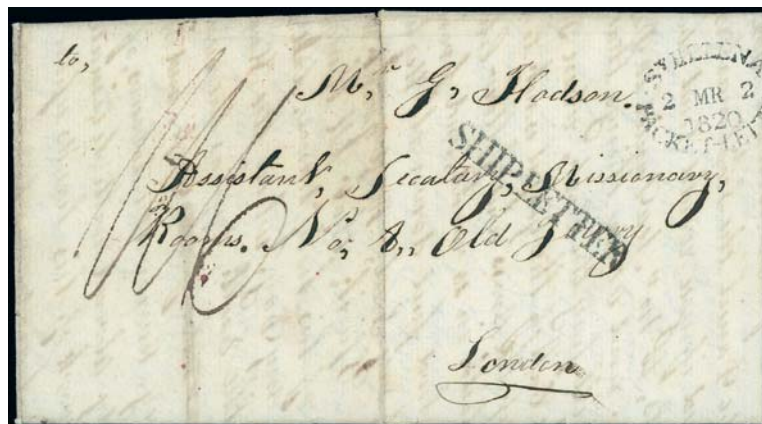 to,
Mr. G, Hodson.
Assistant, Secatary, Missionary,
Rooms. No, 8,, Old Jewry
London
SHIP LETTER
ST HELENA
2 MR 2
1820
PACKET-LETTER